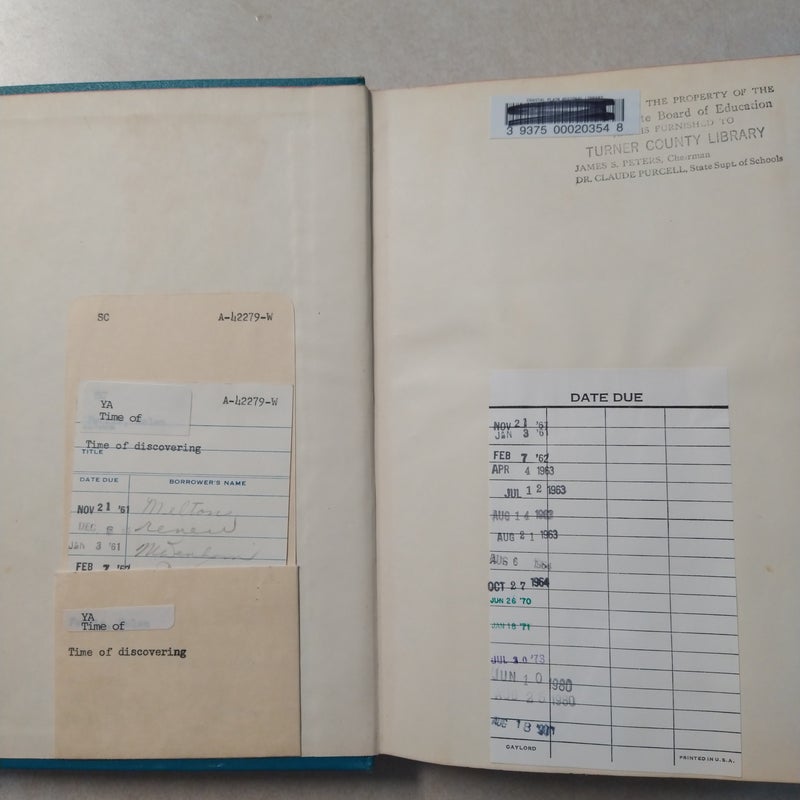 SC A-42279-W
YA A-42279-W
Time of
Time of discovering
TITLE
DATE DUE BORROWER'S NAME
NOV 21 '61 Meltons
DEC renew
JAN 3 '61
FEB 7 '62
YA
Time of
Time of discovering
3 9375 00020354 8
THE PROPERTY OF THE
te Board of Education
IS FURNISHED TO
TURNER COUNTY LIBRARY
JAMES S. PETERS, Chairman
DR. CLAUDE PURCELL, State Supt. of Schools
DATE DUE
NOV 21 '61
JAN 3 '61
FEB 7 '62
APR 4 1963
JUL 12 1963
AUG 14 1963
AUG 21 1963
AUG 6 1964
OCT 27 1964
JUN 26 '70
JAN 18 '71
JUL 30 '73
JUN 10 1980
AUG 25 1980
AUG 18
GAYLORD PRINTED IN U.S.A.